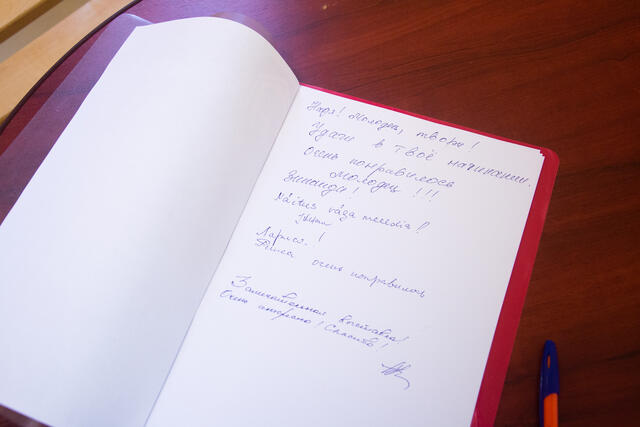 Молодец, твори!
Удачи в твоё начинании.
очень понравилось
Молодец !!!
Näitus väga meeldis!
Лариса. !
очень понравилось
Замечательная выставка!
Очень интересно! Спасибо!